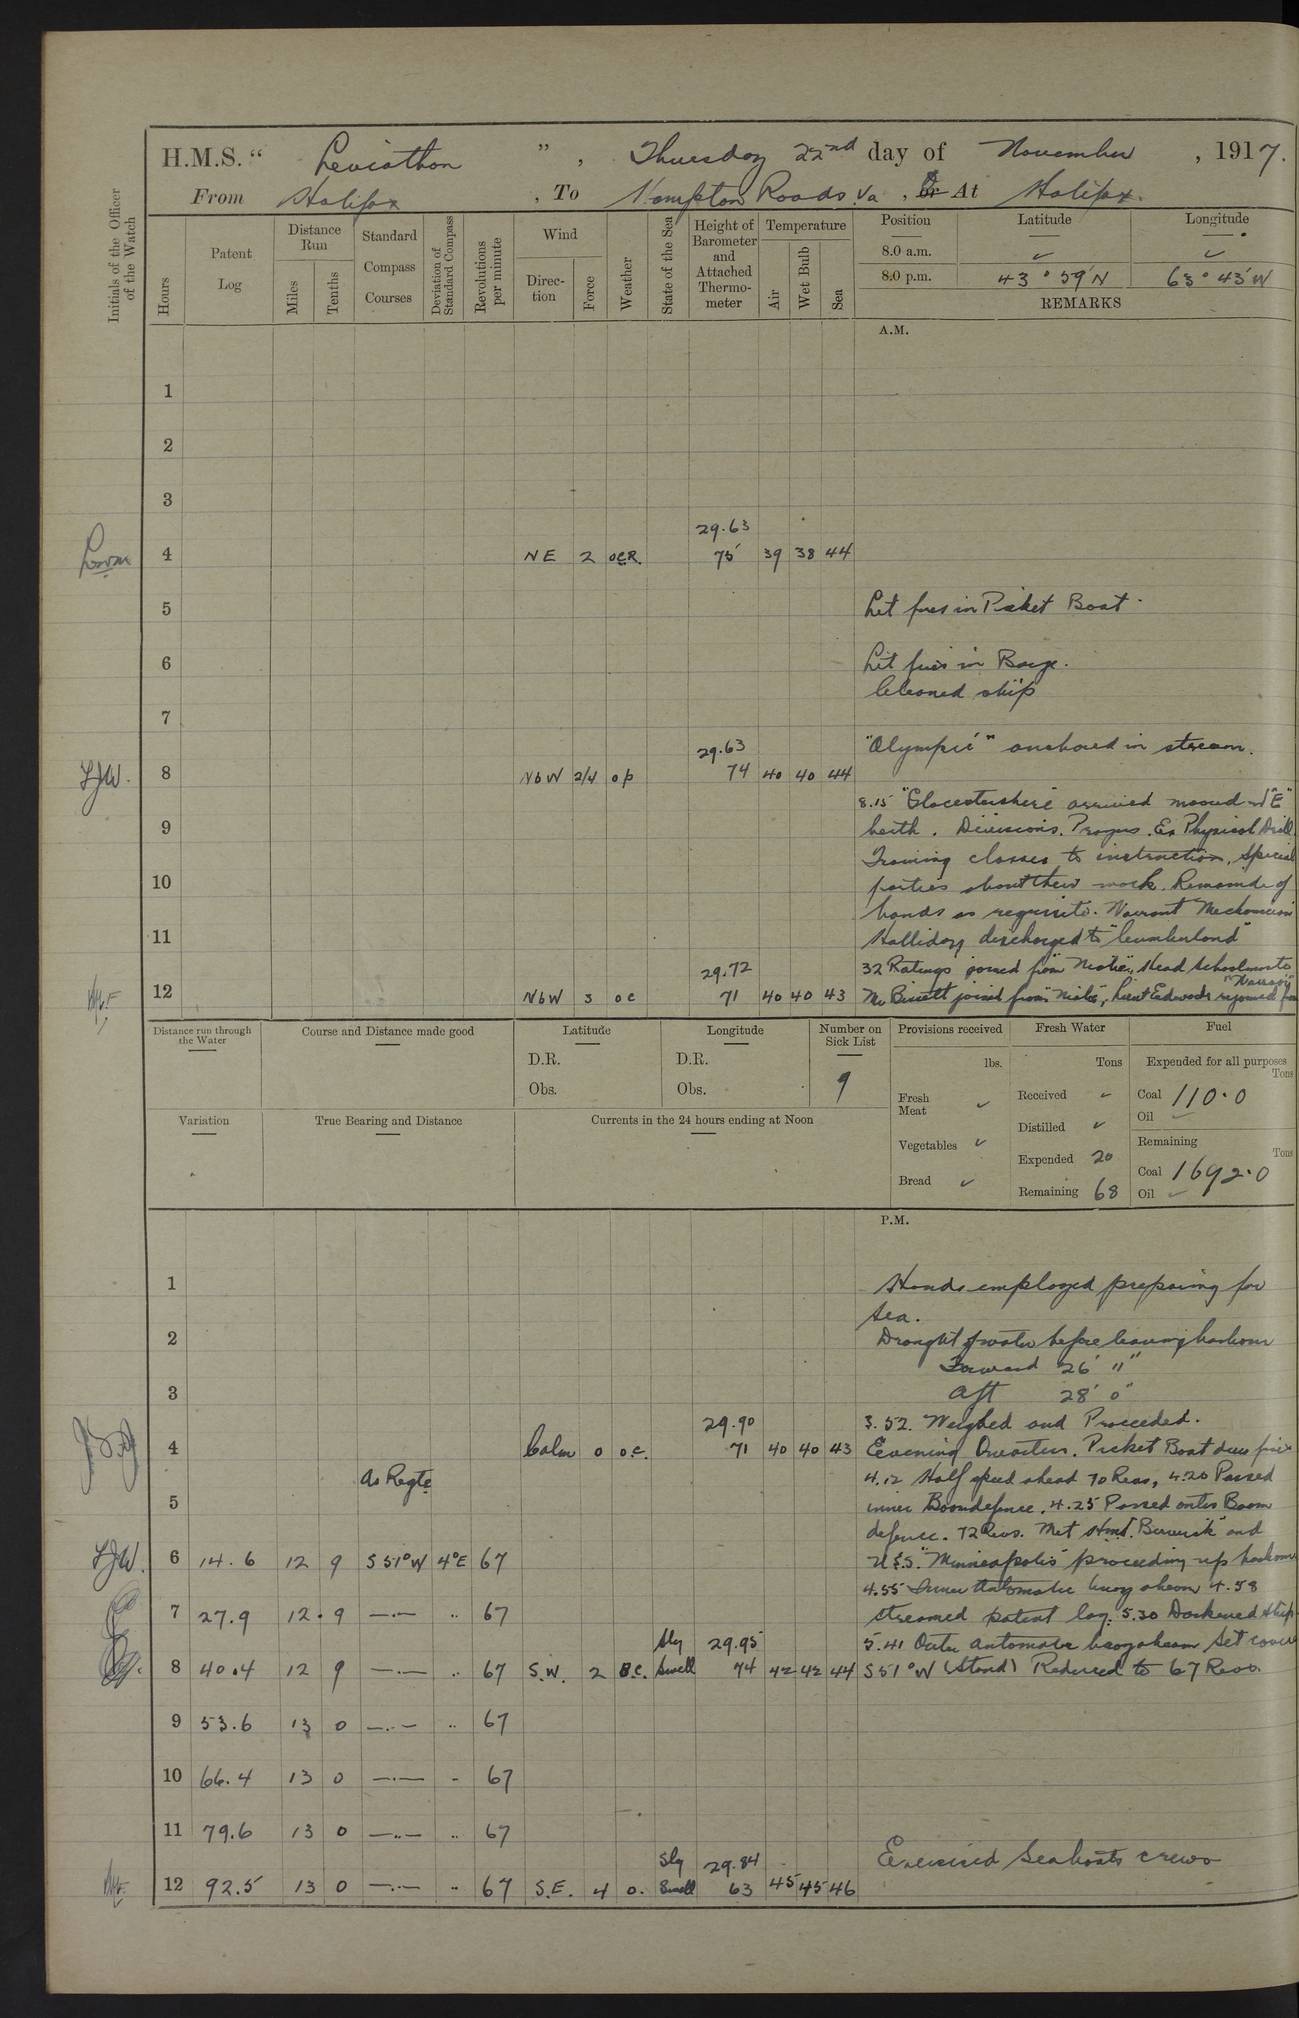 H.M.S. “ Leviathan ” , Thursday 22nd day of November , 1917.
From Halifax , To Hampton Roads Va , or At Halifax.
Initials of the Officer of the Watch
Hours
Patent Log
Distance Run
Miles
Tenths
Standard Compass Courses
Deviation of Standard Compass
Revolutions per minute
Wind
Direction
Force
Weather
State of the Sea
Height of Barometer and Attached Thermometer
Temperature
Air
Wet Bulb
Sea
Position Latitude Longitude
8.0 a.m. ✓ ✓
8.0 p.m. 43° 59' N 63° 43' W
REMARKS
A.M.
1
2
3
29.63
4 NE 2 ocR. 75 39 38 44
5 Lit fires in Picket Boat.
6 Lit fires in Barge.
Cleaned ship
7
29.63 "Olympic" anchored in stream.
LJW. 8 NbW 2/4 op 74 40 40 44
8.15 "Glocestershire" arrived moored in "E"
9 berth. Divisions. Prayers. Ex Physical Drill.
Training classes to instruction, Special
10 parties about their work. Remainder of
hands as requisite. Warrant Mechanician
11 Halliday discharged to "Cumberland"
29.72 32 Ratings joined from "Niobe", Head Schoolmaster
12 NbW 3 oc 71 40 40 43 Mr joined from "Niobe", Lieut Edwards rejoined from
Distance run through the Water
Course and Distance made good
Latitude
D.R.
Obs.
Longitude
D.R.
Obs.
Number on Sick List
9
Provisions received
lbs.
Fresh Meat ✓
Vegetables ✓
Bread ✓
Fresh Water
Tons
Received ✓
Distilled ✓
Expended 20
Remaining 68
Fuel
Expended for all purposes
Tons
Coal 110.0
Oil ✓
Remaining
Tons
Coal 1692.0
Oil ✓
Variation
True Bearing and Distance
Currents in the 24 hours ending at Noon
P.M.
1 Hands employed preparing for
sea.
2 Draught of water before leaving harbour
Forward 26' 11"
3 Aft 28' 0"
29.90 3.52. Weighed and Proceeded.
4 Calm 0 oc. 71 40 40 43 Evening Quarters. Picket Boat drew fires
As Reqte 4.12 Half speed ahead 70 Revs, 4.20 Passed
5 inner Boomdefence. 4.25 Passed outer Boom
defence. 72 Revs. Met HMS "Berwick" and
LJW. 6 14.6 12 9 S 51° W 4°E 67 U.S.S. "Minneapolis" proceeding up harbour
4.55 Inner Automatic buoy abeam 4.58
7 27.9 12.9 —.— .. 67 streamed patent log. 5.30 Darkened ship
Sly 29.95 5.41 Outer automatic buoy abeam Set course
8 40.4 12 9 —.— .. 67 S.W. 2 B.C. Swell 74 42 42 44 S 51° W (Stand) Reduced to 67 Revs.
9 53.6 13 0 —.— .. 67
10 66.4 13 0 —.— .. 67
11 79.6 13 0 —..— .. 67
Sly 29.84 Exercised Seaboats crews
12 92.5 13 0 —.— .. 67 S.E. 4 o. Swell 63 45 45 46